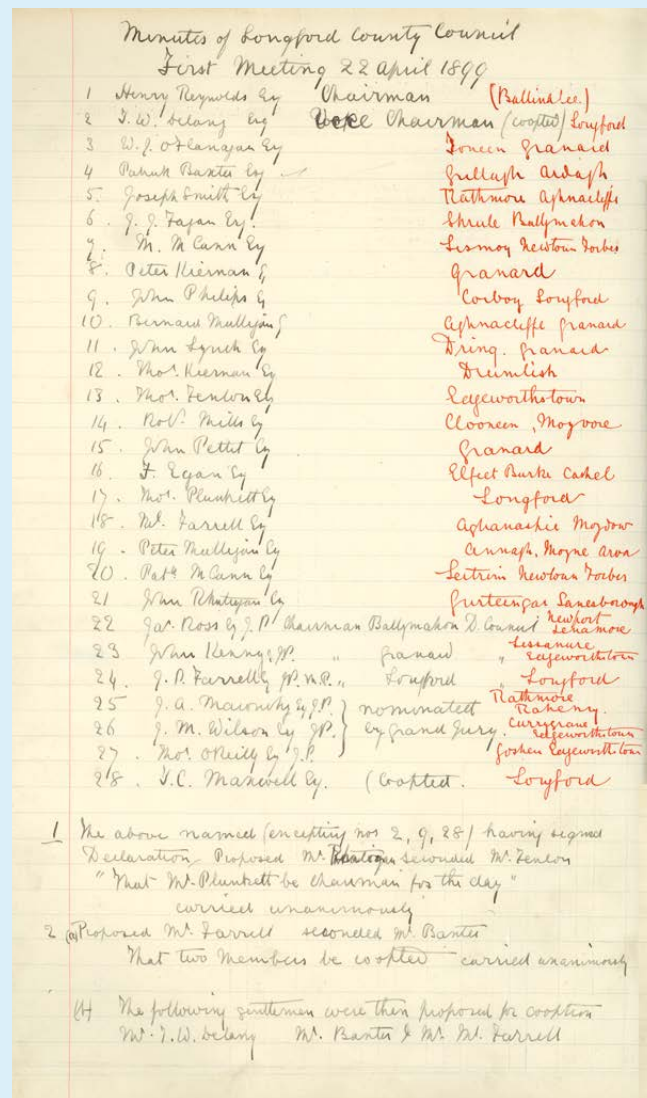 Minutes of Longford County Council
First Meeting 22 April 1899
1 Henry Reynolds Esq Chairman (Ballinalee.)
2 T.W. Delany Esq Vice Chairman (coopted) Longford
3 W.J. O'Flanagan Esq Toneen Granard
4 Patrick Baxter Esq Gullagh Ardagh
5. Joseph Smith Esq Rathmore Aghnacliffe
6. J. J. Fagan Esq. Shrule Ballymahon
7. M. McCann Esq Lismoy Newtown Forbes
8. Peter Kiernan Granard
9. John Philips Corboy Longford
10. Bernard Mulligan Aghnacliffe Granard
11. John Lynch Esq Dring. Granard
12. Thos. Kiernan Esq Drumlish
13. Thos. Fenlon Esq Edgeworthstown
14. Robt. Mills Esq Clooneen, Moyvore
15. John Pettit Esq Granard
16 F. Egan Esq Elfeet Burke Cashel
17. Thos. Plunkett Esq Longford
18. Ml. Farrell Esq Moydow
19. Peter Mulligan Esq Annagh, Moyne Arva
20. Patk McCann Esq Leitrim Newtown Forbes
21 John Esq Lanesborough
22 Jas. Ross Esq J.P. Chairman Ballymahon D. Council Newport Lenamore
23 John Kenny J.P. " Granard " Lissanure Edgeworthstown
24. J. P. Farrell J.P. M.P. " Longford " Longford
25 J. A. Esq J.P. } nominated Rathmore Raheny.
26 J. M. Wilson Esq J.P. } by Grand Jury. Currygrane Edgeworthstown
27. Thos. O'Reilly Esq J.P. } Goshen Edgeworthstown
28. T.C. Maxwell Esq. (Coopted. Longford
1 The above named (excepting nos 2, 9, 28) having signed
Declaration Proposed Mr. seconded Mr. Fenlon
"That Mr. Plunkett be chairman for the day"
carried unanimously
2 (a) Proposed Mr. Farrell seconded Mr. Baxter
That two members be coopted carried unanimously
(b) The following gentlemen were then proposed for cooption
Mr. T.W. Delany Mr. Baxter & Mr. Ml. Farrell